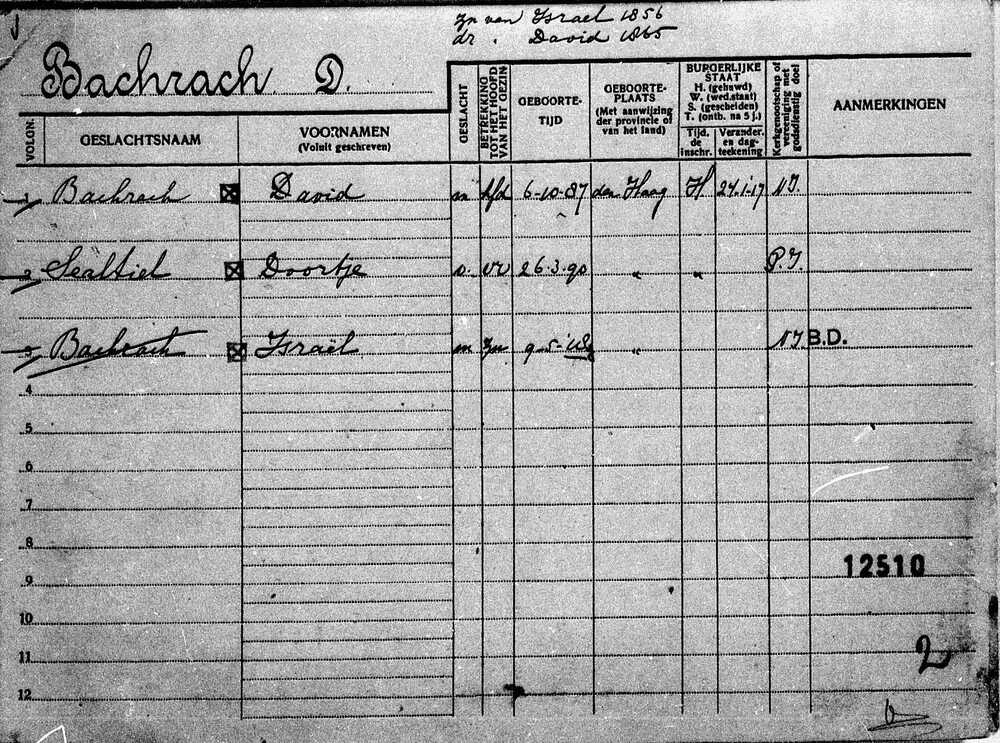 J
Zn van Israel 1856
dr. „ David 1865
Bachrach D.
VOLGN.
GESLACHTSNAAM
VOORNAMEN
(Voluit geschreven)
GESLACHT
BETREKKING TOT HET HOOFD VAN HET GEZIN
GEBOORTE-
TIJD
GEBOORTE-
PLAATS
(Met aanwijzing
der provincie of
van het land)
BURGERLIJKE
STAAT
H. (gehuwd)
W. (wed.staat)
S. (gescheiden)
T. (ontb. na 5 j.)
Tijd.
de
inschr.
Verander.
en dag-
teekening
Kerkgenootschap of
vereeniging met
godsdienstig doel
AANMERKINGEN
1 Bachrach David m hfd 6-10-87 den Haag H 24-1-17 N.I.
2 Sealtiel Doortje v. vr 26-3-90 „ „ P.I.
3 Bachrach Israël m zn 9-5-'18 „ NI B.D.
4
5
6
7
8
9
12510
10
11
2
12